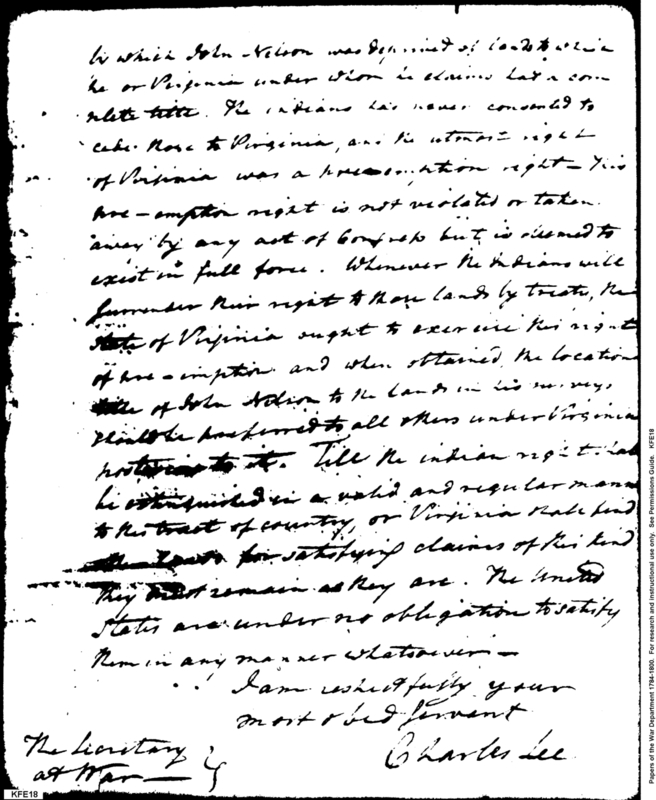 by which John Nelson was deprived of lands to which
he or Virginia under whom he claims had a com
plete title. The indians has never consented to
cede those to Virginia, and the utmost right
of Virginia was a preemption right – This
pre-emption right is not violated or taken
away by any act of Congress but is deemed to
exist in full force. Whenever the indians will
surrender their right to those lands by treaty, the
state of Virginia ought to exercise this right
of pre-emption and when obtained, the location
of John Nelson to the lands in his surveys
should be preferred to all others under Virginia
posterior to it. Till the indian right shall
be extinguished in a valid and regular manner
to this tract of country, or Virginia shall find
for satisfying claims of this kind
they must remain as they are. The United
States are under no obligation to satisfy
them in any manner whatsoever –
I am respectfully your
most obed servant
Charles Lee
The Secretary
at War –
KFE18
Papers of the War Department 1784-1800. For research and instructional use only. See Permissions Guide. KFE18